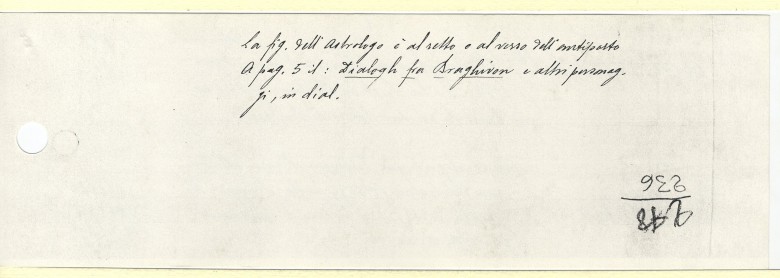 La fig. dell'Astrologo è al retto e al verso dell'antiporto
A pag. 5 il: Dialogh fra Braghiron e altri personag-
gi, in dial.
236